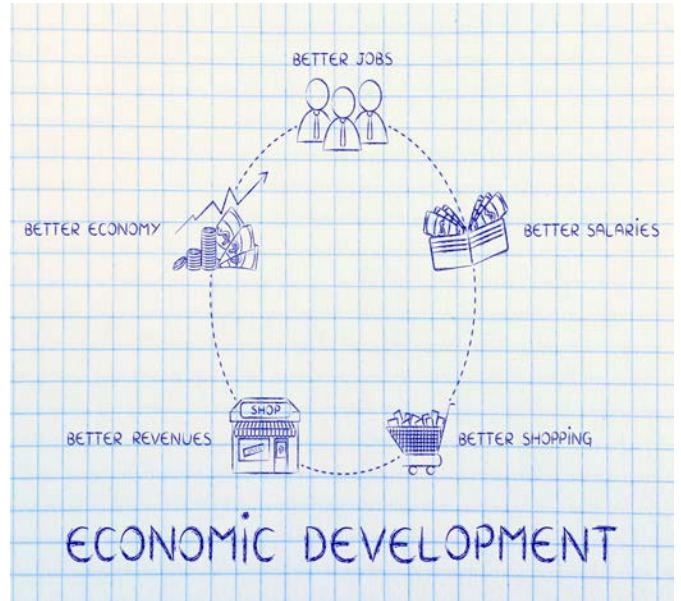 BETTER JOBS
BETTER ECONOMY
BETTER SALARIES
SHOP
BETTER REVENUES
BETTER SHOPPING
ECONOMIC DEVELOPMENT